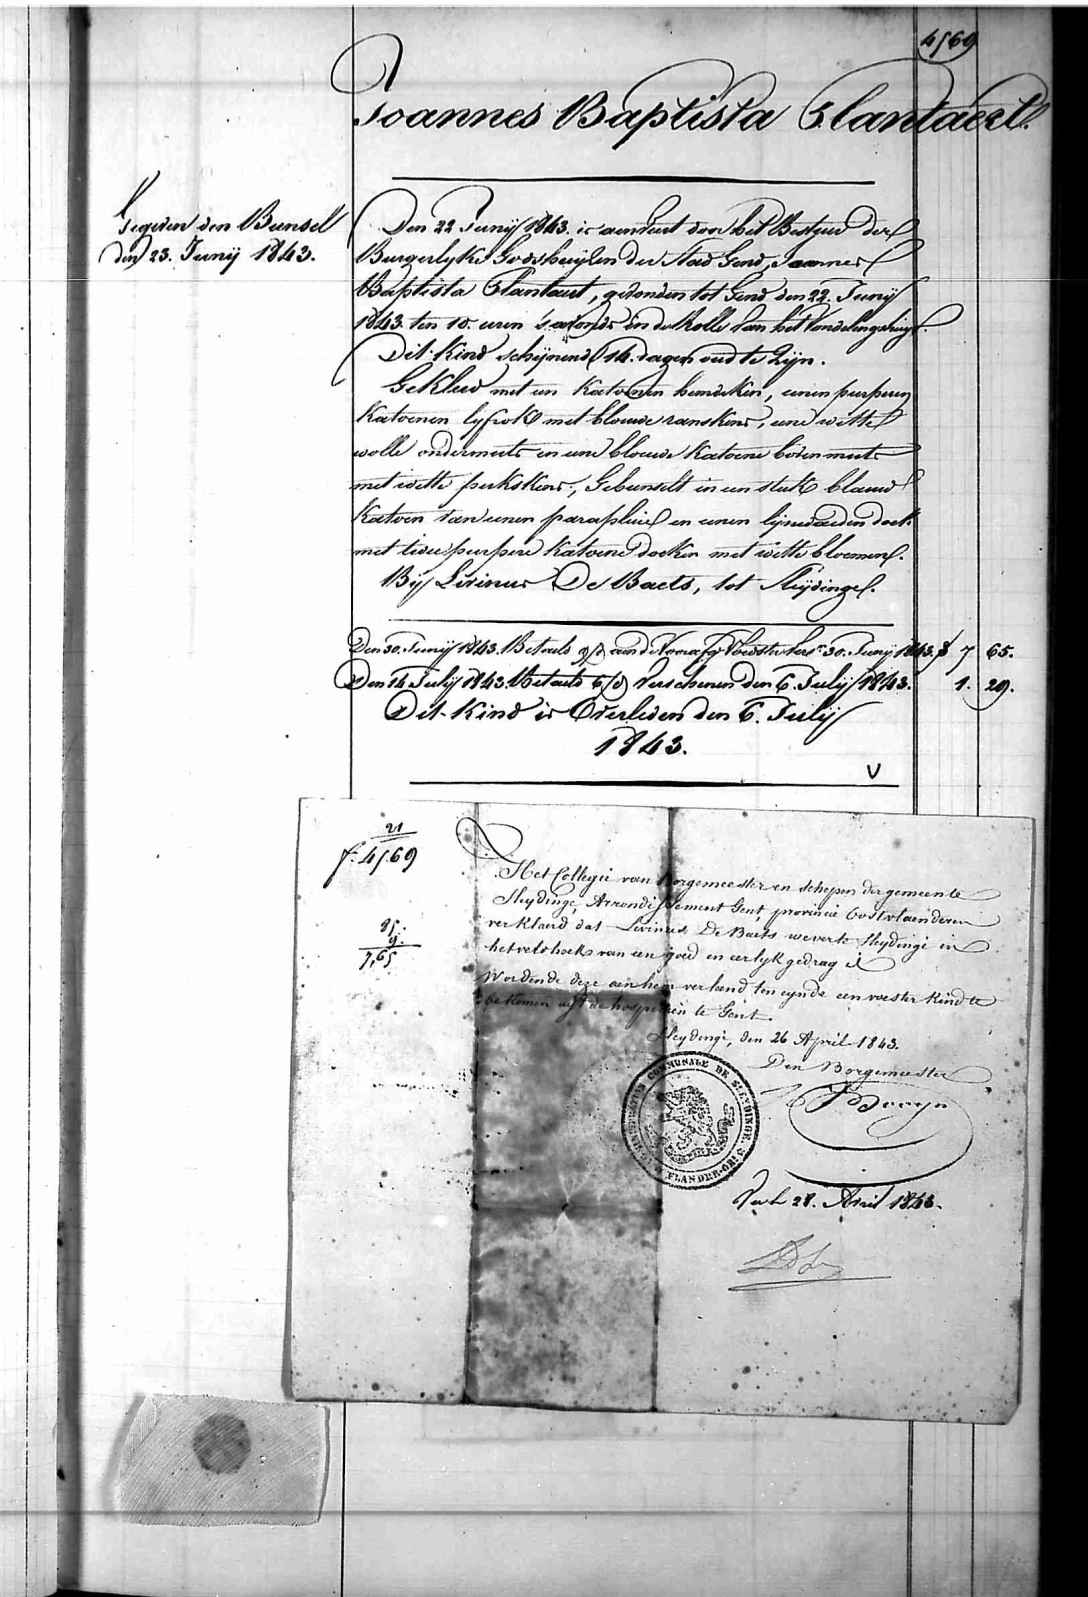 4569
Joannes Baptista Clantaert.
Gegeven den Bunsel
den 23. Junij 1843.
Den 22 Junij 1843. is aenveert door het Bestuer der
Burgerlyke Godshuijsen der Stad Gend, Joannes
Baptista Clantaert, gevonden tot Gend den 22. Junij
1843. ten 10. uren 's avonds in de Rolle van het Vondelingshuijs.
Dit Kind schijnend 14. dagen oud te Zijn.
Gekleed met een Katoenen hemdeken, eenen purperen
Katoenen lyfrok met blouwe ranskens, eene witte
wolle ondermuts en eene blouwe Katoene boven muts
met witte perkskens, Gebunselt in een stuk blauw
Katoen van eenen parapluie en eenen lijnwaeden doek
met twee purpere Katoene doeken met witte bloemen.
Bij Livinus De Baets, tot Sleijdinge.
Den 30. Junij 1843. Betaeld aen de Voedsterker 30. Junij 1843. f 7 65.
Den 14 Julij 1843. Betaeld 6/d Verschenen den 6. Julij 1843. 1. 29.
Dit Kind is Overleden den 6. Julij
1843.
V
21
f: 4569
85.
9.
7,65
Het Collegie van Borgemeester en schepen der gemeente
Sleydinge, Arrondissement Gent, provincie Oostvlaenderen
verklaerd dat Livinus De Baets wever te Sleydinge in
het veldhoek van een goed en eerlyk gedrag is
Wordende deze aen hem verleend ten eynde een voester kind te
bekomen uyt de hospicien te Gent.
Sleydinge, den 26 April 1843.
Den Borgemeester
COMMUNALE DE SLEYDINGE
FLANDER. OR.
Vu le 28. Avril 1843.